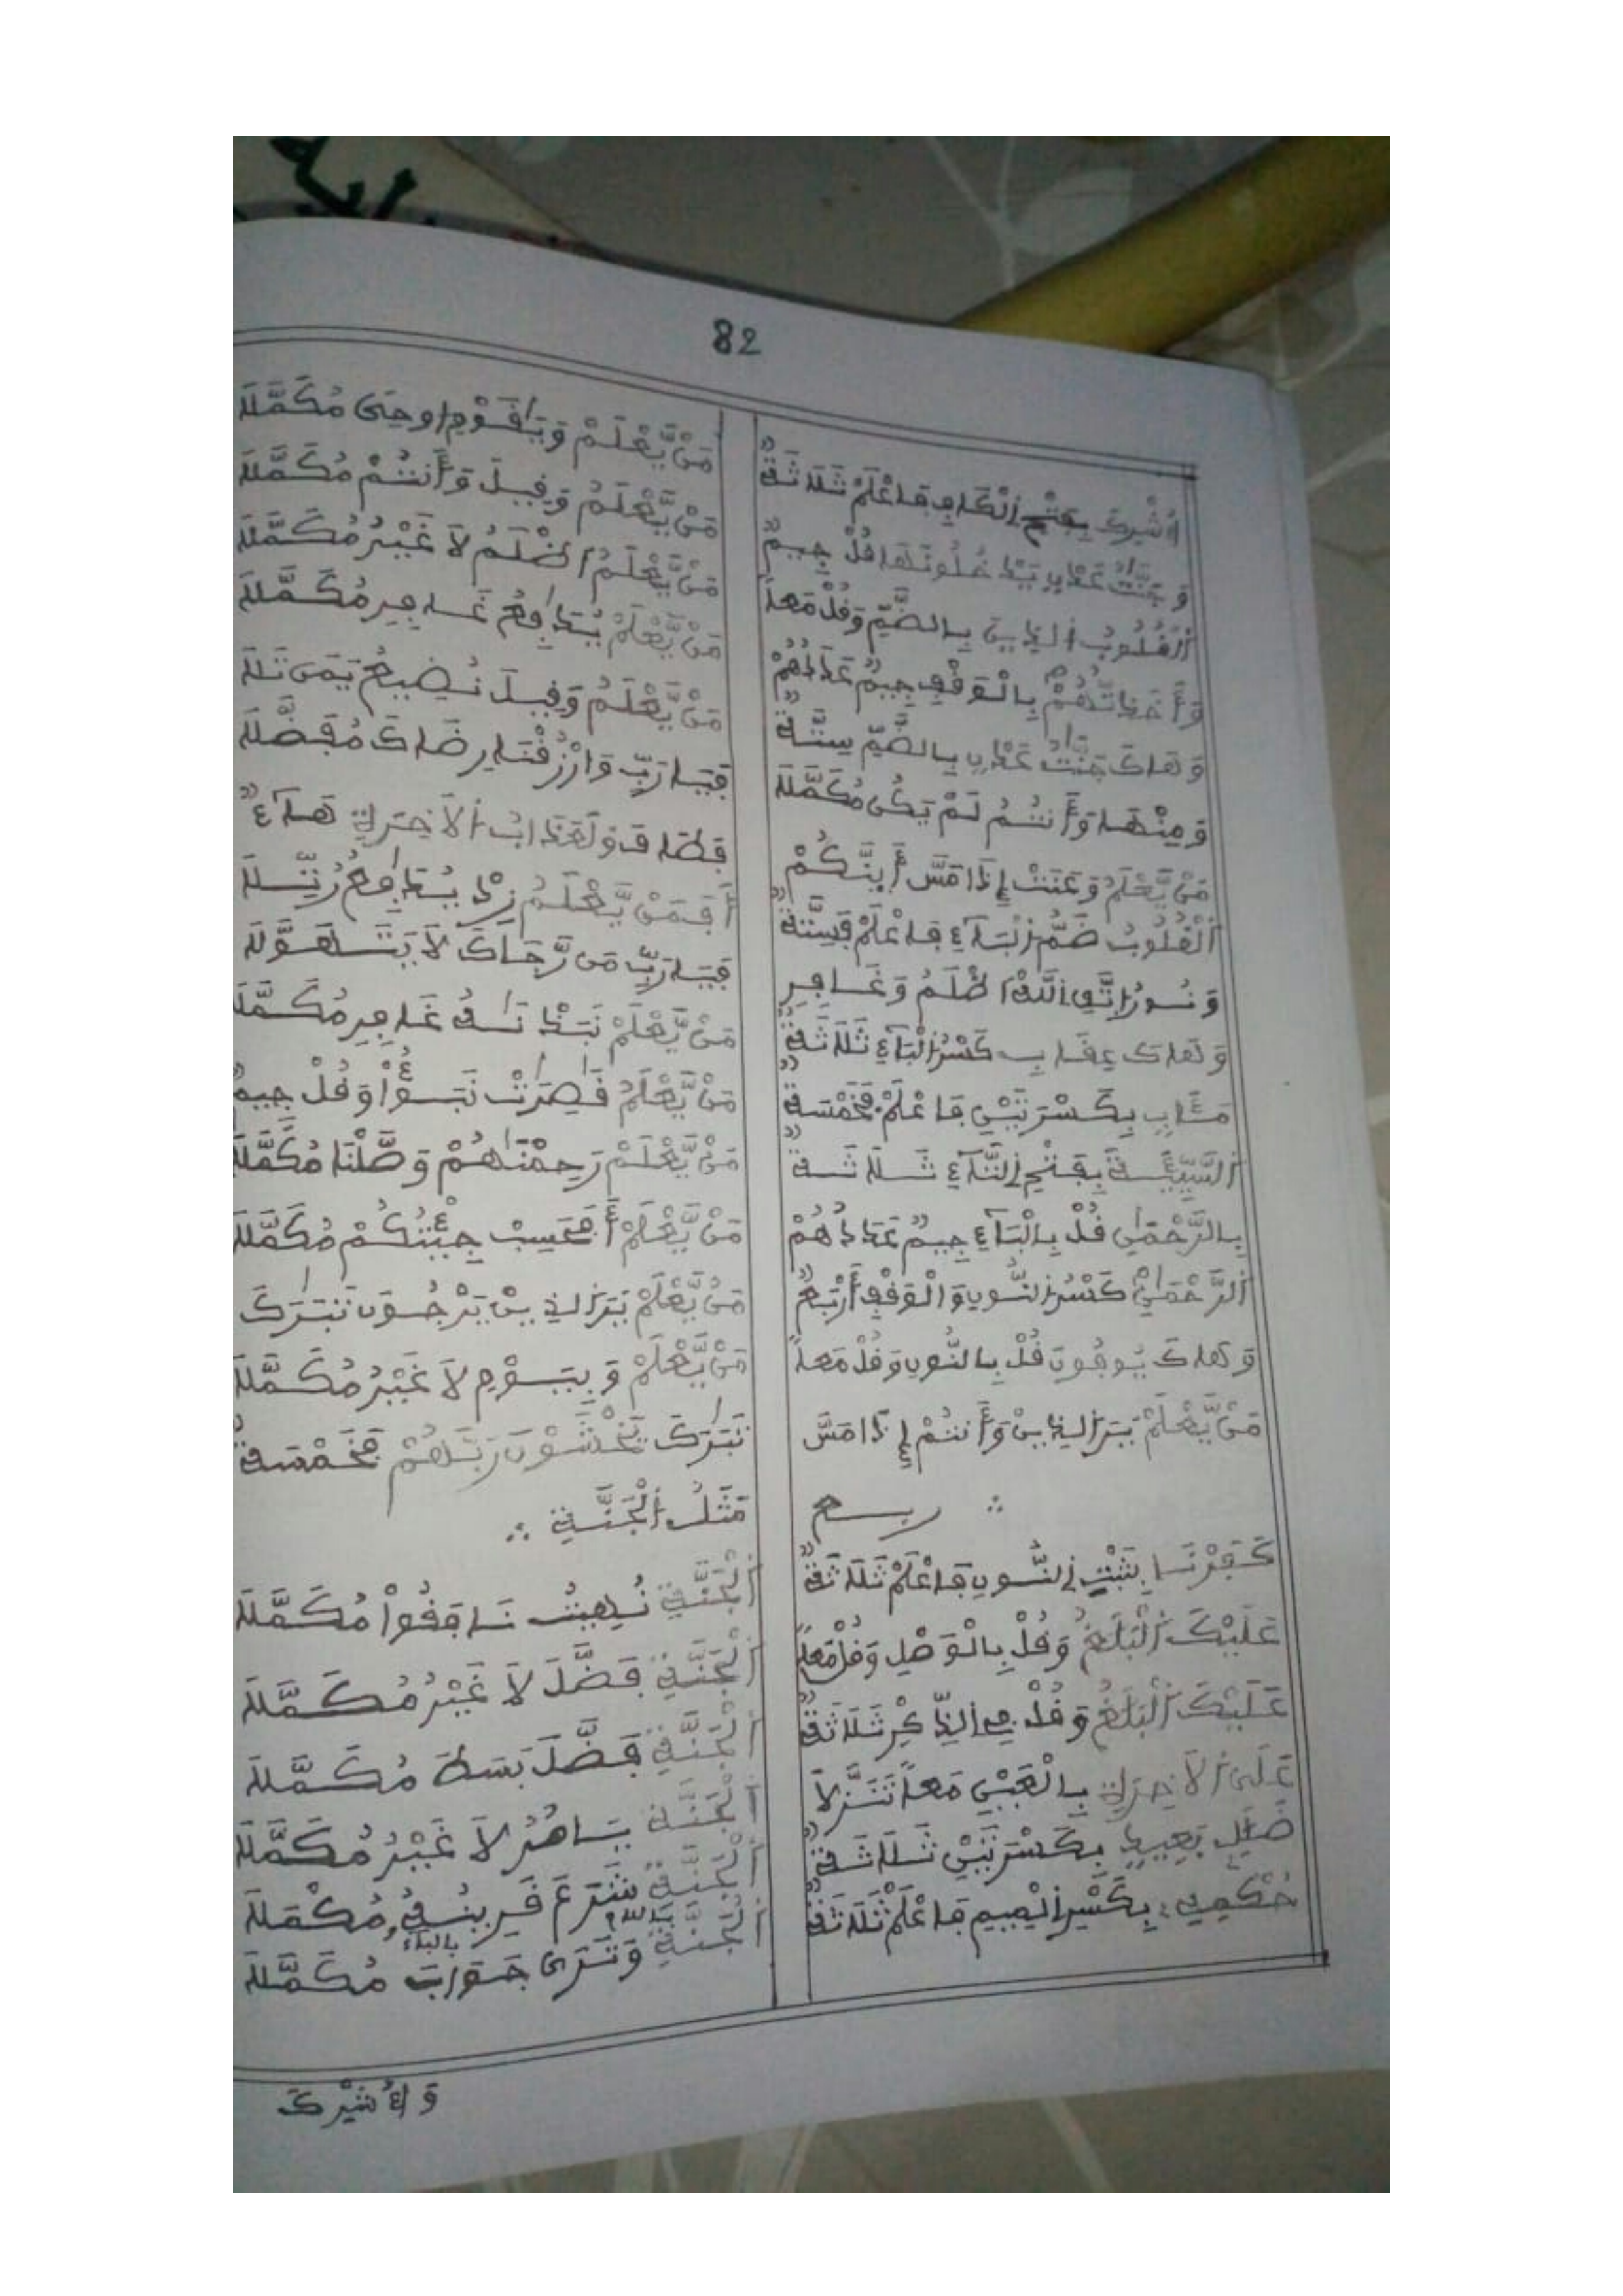 82
أُشْرِكَ بِفَتْحِ اِلْكَافِ فَاعْلَمْ ثَلَاثَةٌ
وَجَنَّٰتُ عَدْنٍ يَدْخُلُونَهَا قُلْ جِيمٌ
اَلْقُلُوبُ اُلذِينَ بِالضَّمِّ وَقُلْ مَعاً
وَأَخَذتُّهُمْ بِالْوَقْفِ جِيمٌ عَدَدُهُمْ
وَهَاكَ جَنَّٰتُ عَدْنٍ بِالضَّمِّ سِتَّةٌ
وَمِنْهَا وَأَنتُمْ لَمْ يَكُن مُكَمَّلَا
مَنْ يَّعْلَمُ وَعَنَتْ إِذَا مَسَّ أَيِنَّكُمْ
اَلْقُلُوبُ ضَمُّ اِلْبَاءِ فَاعْلَمْ فَسِتَّةٌ
وَنُورُ اِتَّقِ اللَّهَ اَظْلَمُ وَغَافِرِ
وَهَاكَ عِقَابِ كَسْرُ اُلْبَاءِ ثَلَاثَةٌ
مَـَٔابٍ بِكَسْرَتَيْنِ فَاعْلَمْ فَخَمْسَةٌ
اَلسَّيِّئَةَ بِفَتْحِ اِلتَّاءِ ثَلَاثَةٌ
بِالرَّحْمَٰنِ قُلْ بِالْبَاءِ جِيمٌ عَدَدُهُمْ
اَلرَّحْمَٰنِ كَسْرُ اُلنُّونِ وَالْوَقْفِ أَرْبَعٌ
وَهَاكَ يُوفُونَ قُلْ بِالنُّونِ وَقُلْ مَعاً
مَنْ يَّعْلَمْ تَرَ اَلذِينَ وَأَنتُمْ إِذَا مَسَّ
ربع
كَفَرْنَا بِثَبْتِ اِلنُّونِ فَاعْلَمْ ثَلَاثَةٌ
عَلَيْكَ اَلْبَلَٰغُ وَقُلْ بِالْوَصْلِ وَقُلْ مَعاً
عَلَيْكَ اَلْبَلَٰغُ وَقُلْ فِي اِلذِّكْرِ ثَلَاثَةٌ
عَلَى اَلَاخِرَةِ بِالْعَيْنِ مَعاً تَنَزَّلَا
ضَلَٰلٍ بَعِيدٍ بِكَسْرَتَيْنِ ثَلَاثَةٌ
حُكْمِ بِكَسْرِ اِلْمِيمِ فَاعْلَمْ ثَلَاثَةٌ
مَنْ يَّعْلَمْ وَيَٰقَوْمِ اُوحِيَ مُكَمَّلَا
مَنْ يَّعْلَمُ وَقِيلَ وَأَنتُمْ مُكَمَّلَا
مَنْ يَّعْلَمُ اَظْلَمُ لَا غَيْرُ مُكَمَّلَا
مَنْ يَّعْلَمْ يُدَٰفِعُ غَافِرِ مُكَمَّلَا
مَنْ يَّعْلَمُ وَقِيلَ نُضِيعُ
فَيَا رَبِّ وَارْزُقْنَا رِضَاكَ مُفَضَّلَا
فَصَادَ وَلَعَذَابُ اُلَاخِرَةِ هَاءٌ
أَفَمَنْ يَّعْلَمُ زِدْ يُدَٰفِعُ رُتِّلَا
فَيَا رَبِّ مَن رَّجَاكَ لَا
مَنْ يَّعْلَمْ غَافِرِ مُكَمَّلَا
مَنْ يَّعْلَمُ قَٰصِرَٰتُ نَبَؤُاْ وَقُلْ جِيمٌ
مَنْ يَّعْلَمْ رَحِمْنَٰهُمْ وَصَّلْنَا مُكَمَّلَا
مَنْ يَّعْلَمْ أَفَحَسِبَ جِئْتُكُمْ مُكَمَّلَا
مَنْ يَّعْلَمْ تَرَ اَلذِينَ يَرْجُونَ تَبَٰرَكَ
مَنْ يَّعْلَمْ وَيَوْمِ لَا غَيْرُ مُكَمَّلَا
تَبَٰرَكَ يَخْشَوْنَ رَبَّهُمْ فَخَمْسَةٌ
مَثَلُ اُلْجَنَّةِ
اَلْجَنَّةِ نُهِيتُ نَافَقُواْ مُكَمَّلَا
اَلْجَنَّةِ فَضَّلَ لَا غَيْرُ مُكَمَّلَا
اَلْجَنَّةِ فَضَّلَ بَسَطَ مُكَمَّلَا
اَلْجَنَّةِ لَا غَيْرُ مُكَمَّلَا
اَلْجَنَّةِ شَرَعَ قَرِينُهُ مُكَمَّلَا
بالباء
اَلْجَنَّةِ وَتَرَى جَوَابَ مُكَمَّلَا
وَلَا أُشْرِكَ